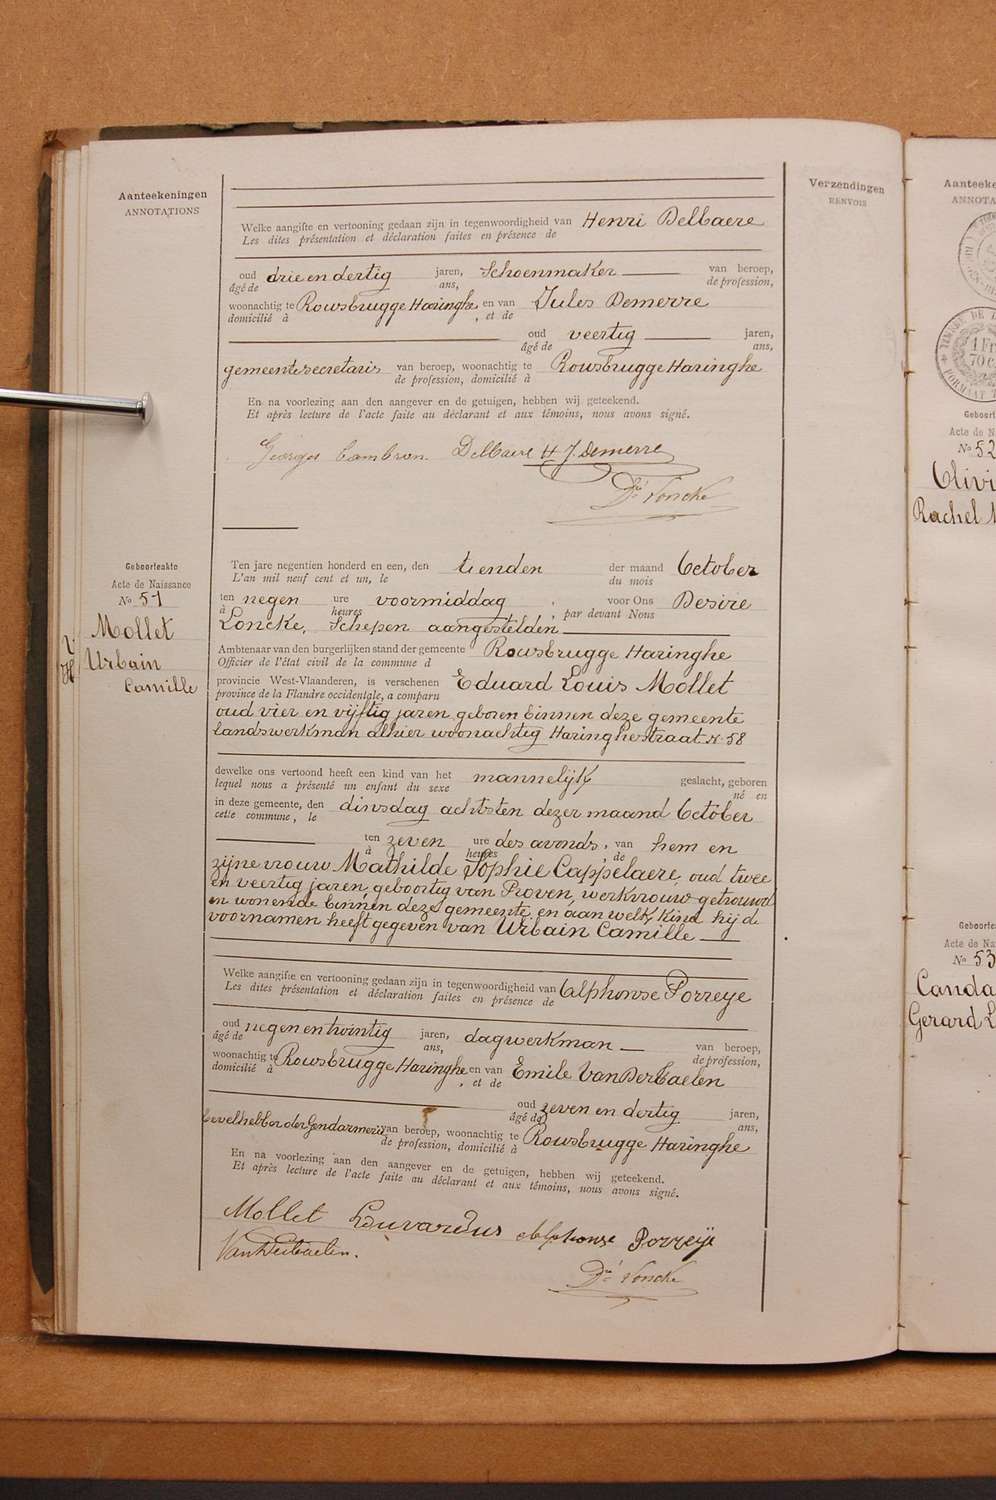 Aanteekeningen
ANNOTATIONS
Verzendingen
RENVOIS
Welke aangifte en vertooning gedaan zijn in tegenwoordigheid van Henri Delbaere
Les dites présentation et déclaration faites en présence de
oud drie en dertig jaren, Schoenmaker van beroep,
âgé de ans, de profession,
woonachtig te Rousbrugge Haringhe en van Jules Demerre
domicilié à , et de
oud veertig jaren,
âgé de ans,
gemeentesecretaris van beroep, woonachtig te Rousbrugge Haringhe
de profession, domicilié à
En na voorlezing aan den aangever en de getuigen, hebben wij geteekend.
Et après lecture de l'acte faite au déclarant et aux témoins, nous avons signé.
Georges Cambron. Delbaere H J. Demerre
Dé Loncke
Geboorteakte
Acte de Naissance
No 51
Mollet
Urbain
Camille
Ten jare negentien honderd en een, den tienden der maand October
L'an mil neuf cent et un, le du mois
ten negen ure voormiddag , voor Ons Desire
à heures par devant Nous
Loncke, Schepen aangestelden
Ambtenaar van den burgerlijken stand der gemeente Rousbrugge Haringhe
Officier de l'état civil de la commune d
provincie West-Vlaanderen, is verschenen Eduard Louis Mollet
province de la Flandre occidentale, a comparu
oud vier en vijftig jaren geboren binnen deze gemeente
landswerkman alhier woonachtig Haringhestraat No 58
dewelke ons vertoond heeft een kind van het mannelijk geslacht, geboren
lequel nous a présenté un enfant du sexe né en
in deze gemeente, den dinsdag achtsten dezer maand October
cette commune, le
ten zeven ure des avonds, van hem en
à heures de
zijne vrouw Mathilde Sophie Cappelaere, oud twee
en veertig jaren, geboortig van Proven, werkvrouw getrouwd
en wonende binnen deze gemeente, en aan welk kind hij de
voornamen heeft gegeven van Urbain Camille
Welke aangifte en vertooning gedaan zijn in tegenwoordigheid van Alphonse Porreye
Les dites présentation et déclaration faites en présence de
oud negen en twintig jaren, dagwerkman van beroep,
âgé de ans, de profession,
woonachtig te Rousbrugge Haringhe en van Emile Vanderbaelen
domicilié à , et de
oud zeven en dertig jaren,
âgé de ans,
bevelhebber der Gendarmerie van beroep, woonachtig te Rousbrugge Haringhe
de profession, domicilié à
En na voorlezing aan den aangever en de getuigen, hebben wij geteekend.
Et après lecture de l'acte faite au déclarant et aux témoins, nous avons signé.
Mollet Louvardus Alphonse Porreije
Vanderbaelen.
Dé Loncke
Aanteeke
ANNOTA
TIMBRE DE
1 Fr
70 c
FORMAAT
Geboorte
Acte de N
No 52
Olivi
Rachel
Geboorte
Acte de Na
No 53
Canda
Gerard L